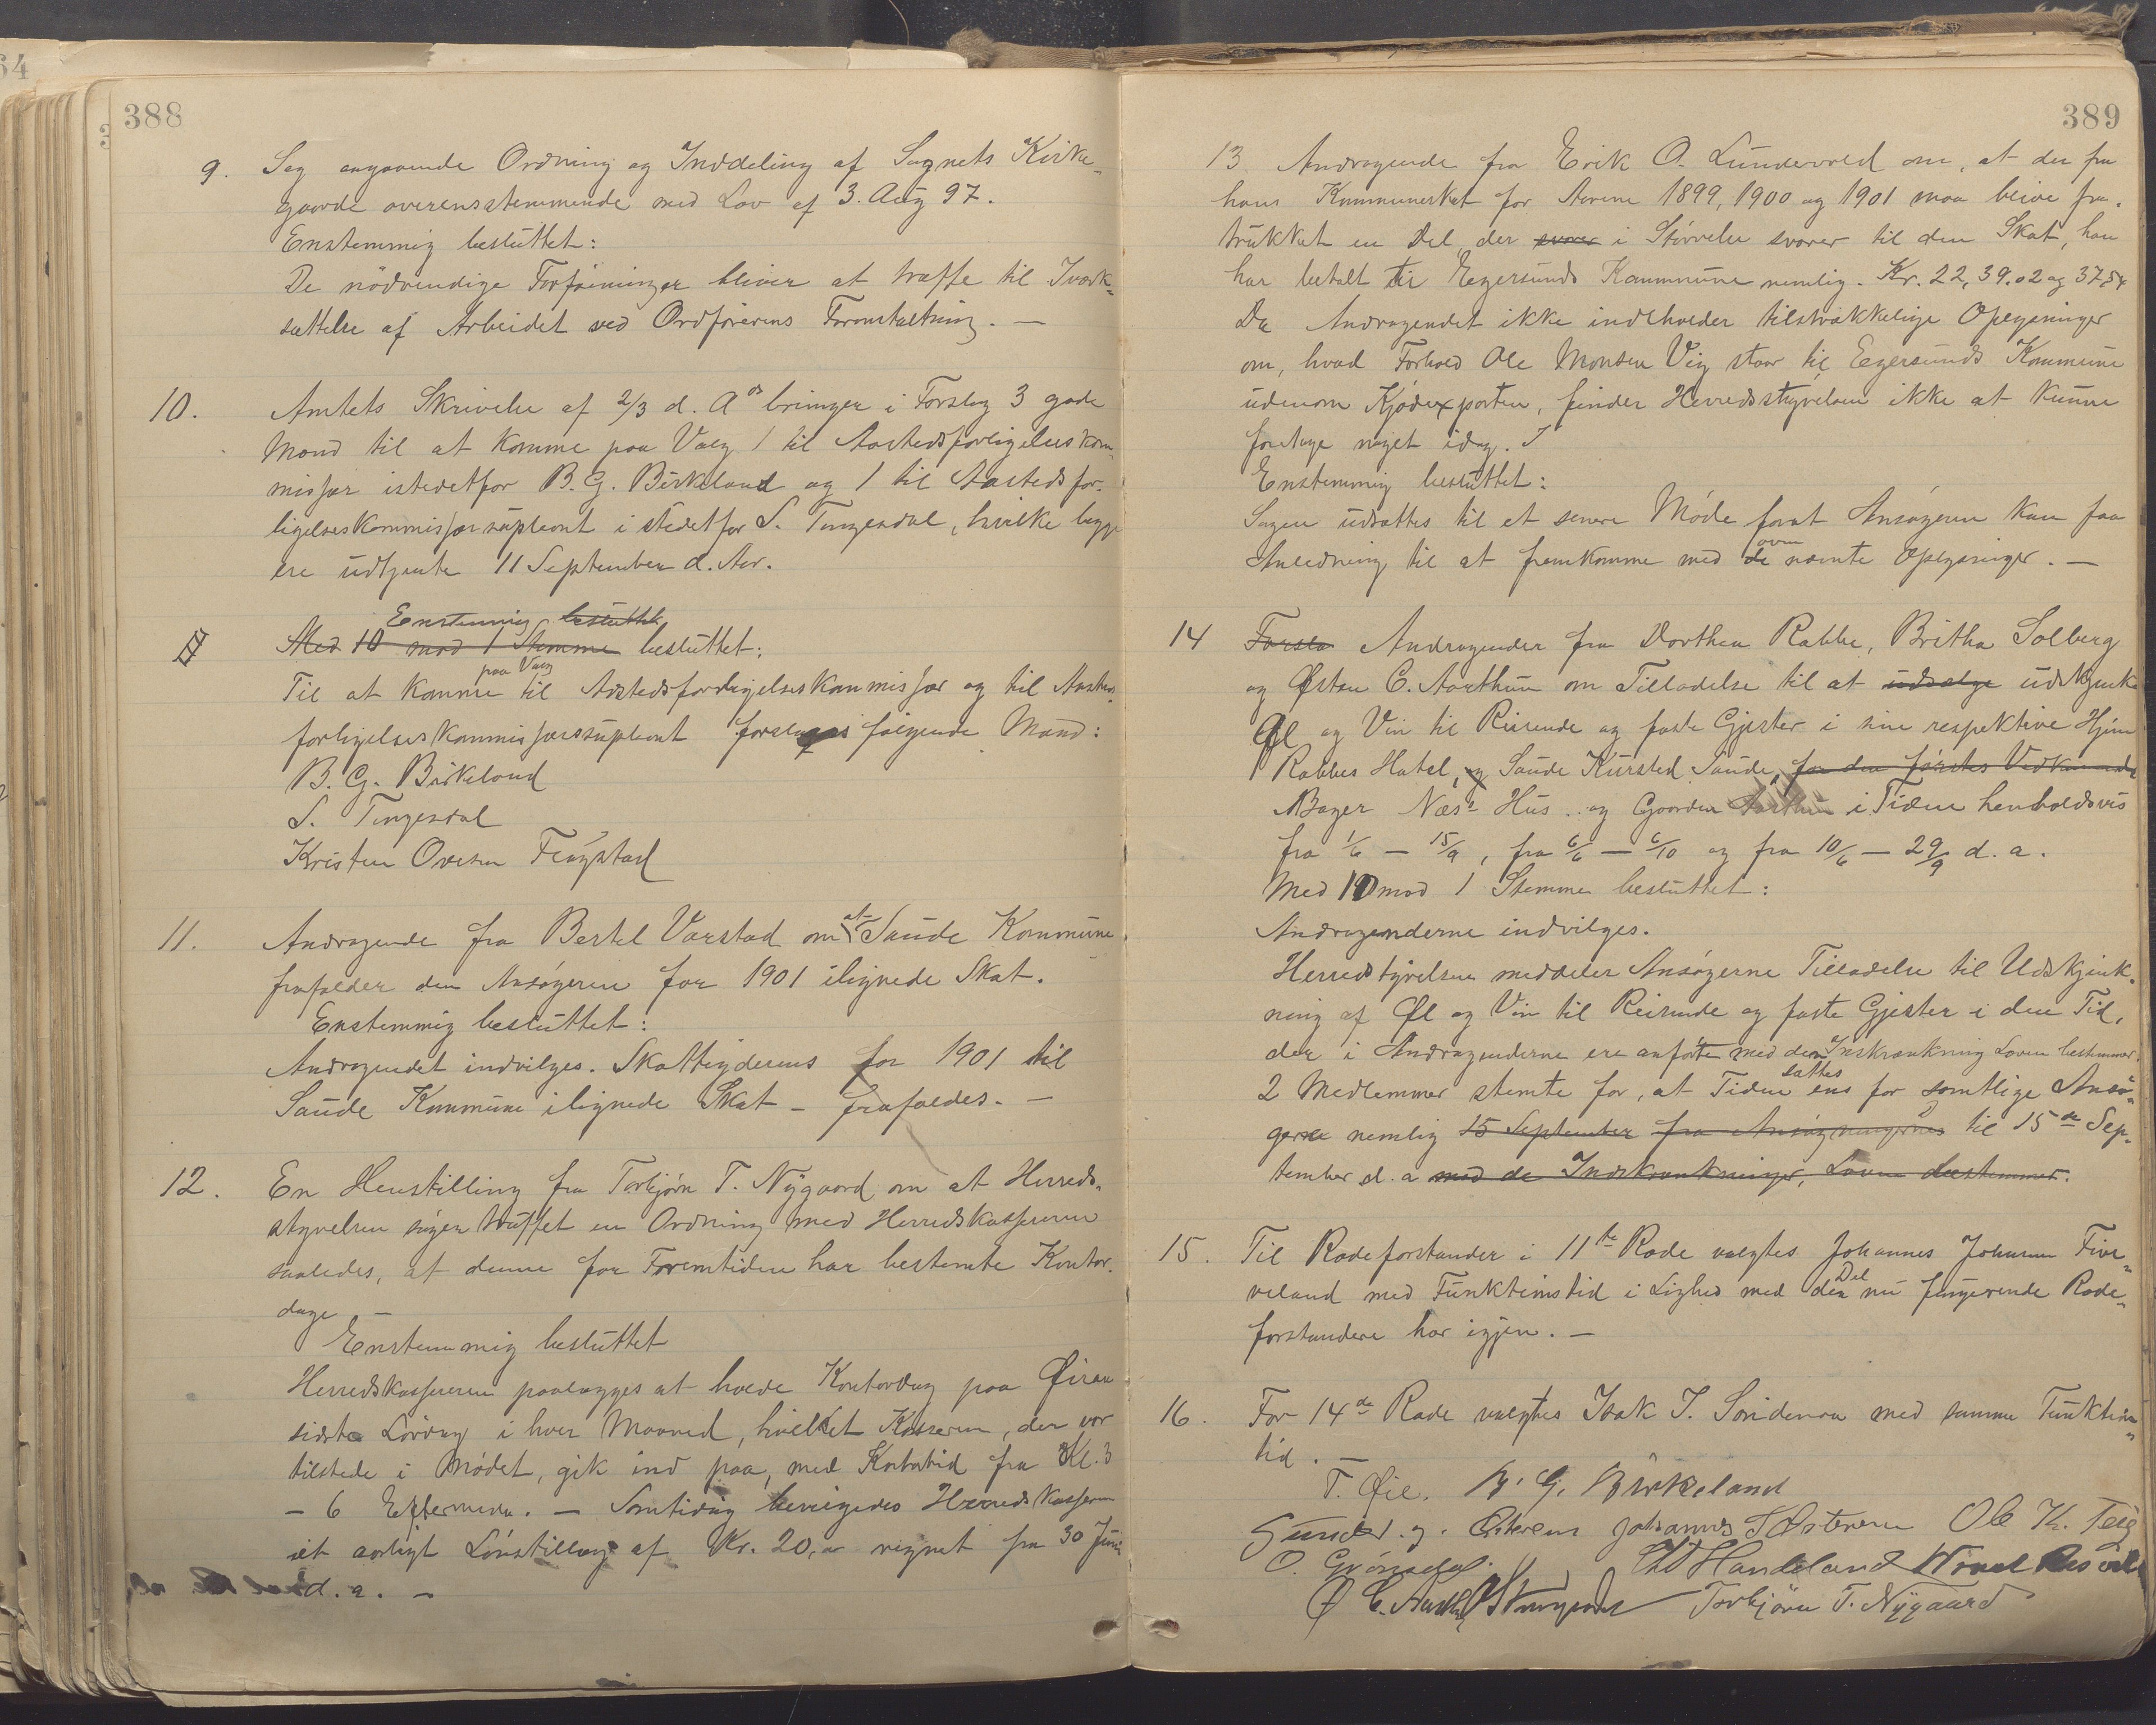 388
9. Sag angaaende Ordning og Inddeling af Sognets Kirke-
gaarde overensstemmende med Lov af 3. Aug 97.
Enstemmig besluttet:
De nödvendige Forföininger bliver at træffe til Iværk-
sættelse af Arbeidet ved Ordförerens Foranstaltning. —
10. Amtets Skrivelse af 2/3 d. A. bringer i Forslag 3 gode
Mænd til at komme paa Valg 1 til Aastedsforligelseskom-
missær istedetfor B. G. Birkeland og 1 til Aastedsfor-
ligelseskommissærsupleant i stedetfor S. Tengesdal, hvilke begge
ere udtjente 11 September d. Aar.
Enstemmig besluttet
Med 10 mod 1 Stemme besluttet:
paa Valg
Til at komme til Aastedsforligelseskommissær og til Aasteds-
forligelseskommissærsupleant foreslaaes følgende Mænd:
B. G. Birkeland
S. Tengesdal
Kristen Ovesen Fløystad
11. Andragende fra Bertel Varstad om at Saude Kommune
frafalder den Ansøgeren for 1901 ilignede Skat.
Enstemmig besluttet:
Andragendet indvilges. Skatteyderens for 1901 til
Saude Kommune ilignede Skat - frafaldes. —
12. En Henstilling fra Torbjørn T. Nygaard om at Herreds-
styrelsen søger truffet en Ordning med Herredskassereren
saaledes, at denne for Fremtiden har bestemte Kontor-
dage. —
Enstemmig besluttet
Herredskassereren paalægges at holde Kontordag paa Øiren
sidste Lördag i hver Maaned, hvilket Kassereren, der var
tilstede i Mødet, gik ind paa, med Kontortid fra Kl. 3
- 6 Efterm. — Samtidig bevilgedes Herredskassereren
et aarligt Lönstillæg af Kr. 20,00 regnet fra 30 Juni
d. a. —
389
13 Andragende fra Erik O. Lundevold om, at der fra
hans Kommuneskat for Aarene 1899, 1900 og 1901 maa blive fra-
trukket en Del, der svarer i Størrelse svarer til den Skat, han
har betalt til Egersunds Kommune nemlig. Kr. 22, 39.02 og 37,54
Da Andragendet ikke indeholder tilstrækkelige Oplysninger
om, hvad Forhold Ole Monsen Vig staar til Egersunds Kommune
udenom Kjödexporten, finder Herredsstyrelsen ikke at kunne
foretage noget idag.
Enstemmig besluttet:
Sagen udsættes til et senere Møde forat Ansøgeren kan faa
Anledning til at fremkomme med de oven nævnte Oplysninger. —
14 Forsla Andragender fra Dorthea Rabbe, Britha Solberg
og Østen C. Aarthun om Tilladelse til at udsælge udskjenke
Øl og Vin til Reisende og faste Gjester i sine respektive Hjem
Rabbes Hotel, og Saude Kursted Saude, for den förstes Vedkommende
Bager Næs's Hus og Gaarden Aarthun i Tiden henholdsvis
fra 1/6 — 15/9, fra 6/6 — 6/10 og fra 10/6 — 29/9 d. a.
Med 10 mod 1 Stemme besluttet:
Andragenderne indvilges.
Herredstyrelsen meddeler Ansøgerne Tilladelse til Udskjenk-
ning af Øl og Vin til Reisende og faste Gjester i den Tid,
der i Andragenderne ere anførte med den Inskrænkning Loven bestemmer.
2 Medlemmer stemte for, at Tiden sættes ens for samtlige Ansö-
gere nemlig 15 September fra Ansøgningernes til 15de Sep-
tember d. a med de Indskrænkninger, Loven bestemmer.
15. Til Rodeforstander i 11te Rode valgtes Johannes Johnsen Five-
veland med Funktionstid i Lighed med den Del nu fungerende Rode-
forstandere har igjen. —
16. For 14de Rode valgtes Isak I. Söndenaa med samme Funktions-
tid. —
T. Øie. B. G. Birkeland
Gunder G. Østerens Johannes S Østerens Ole K. Teig
O. Grönsdal Handeland
Ø C. Aarthun Torbjörn T. Nygaard